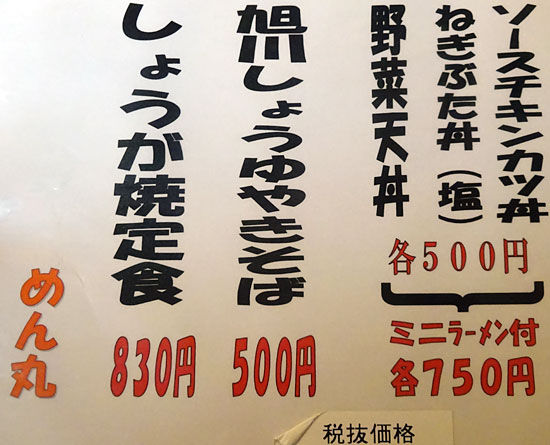 ソースチキンカツ丼
ねぎぶた丼(塩)
野菜天丼
各500円
ミニラーメン付
各750円
旭川しょうゆやきそば
500円
しょうが焼定食
830円
めん丸
税抜価格